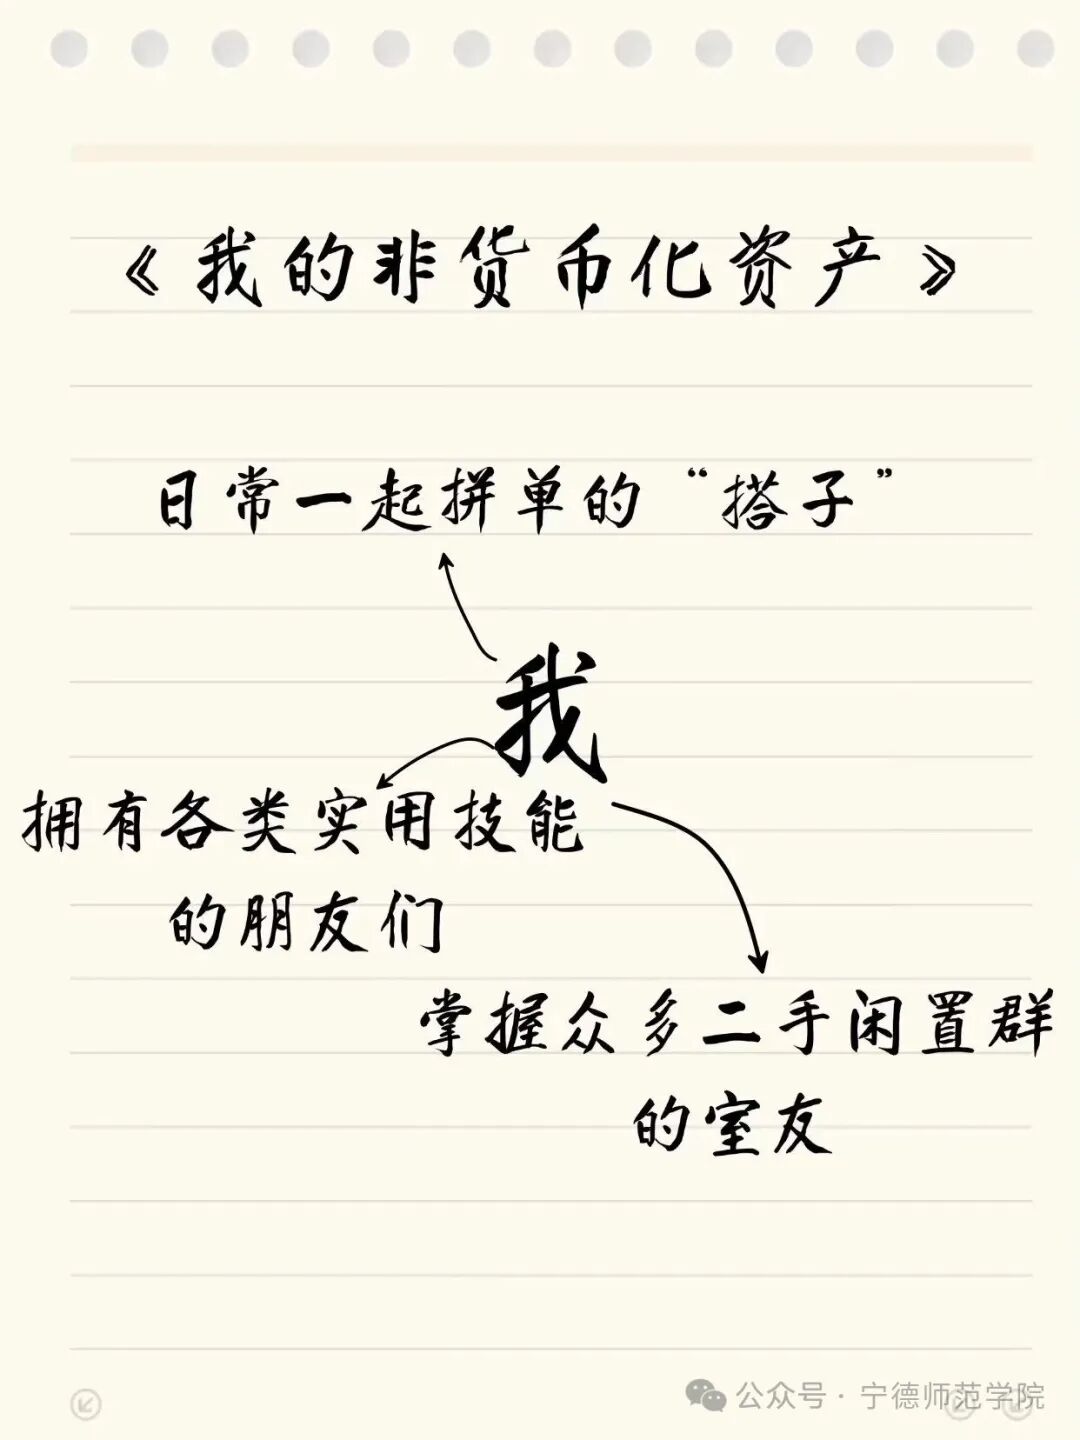 《我的非货币化资产》
日常一起拼单的“搭子”
我
拥有各类实用技能
的朋友们
掌握众多二手闲置群
的室友
公众号·宁德师范学院